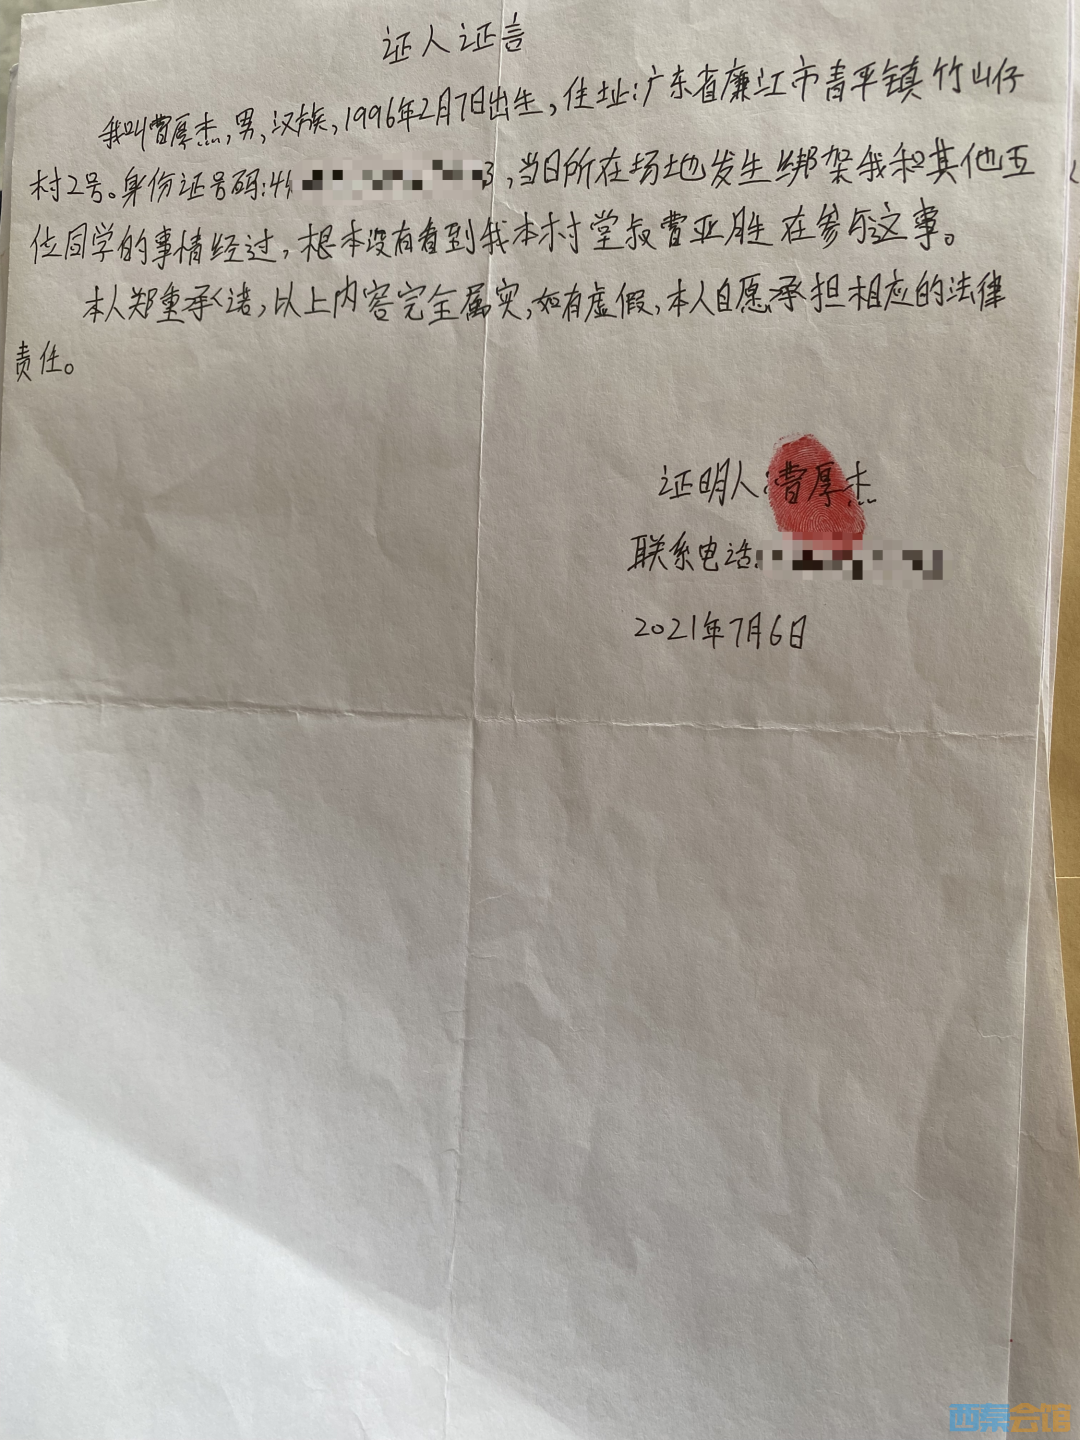 证人证言
我叫曹厚杰,男,汉族,1996年2月7日出生,住址:广东省廉江市青平镇竹山仔
村2号。身份证号码:44 3,当日所在场地发生绑架我和其他五
位同学的事情经过,根本没有看到我本村堂叔曹亚胜在参与这事。
本人郑重承诺,以上内容完全属实,如有虚假,本人自愿承担相应的法律
责任。
证明人:曹厚杰
联系电话:
2021年7月6日
西秦会馆